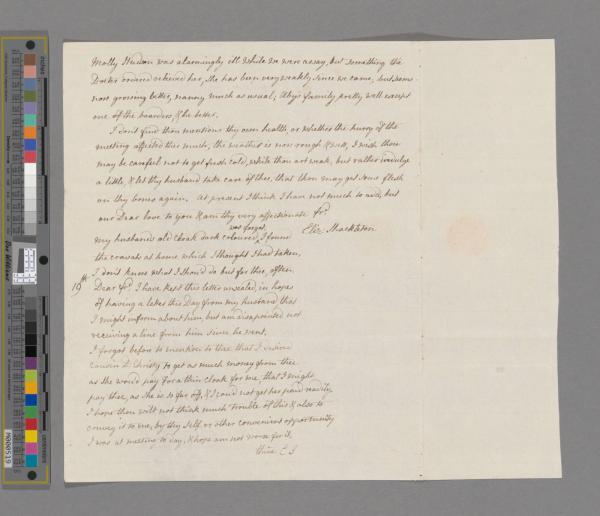 Molly Hudson was alarmingly ill while we were away, but something the
Doctor ordered relieved her, she has been very weakly since we came, but seems
now growing better, nanny much as usual; Aby's family pretty well except
one of the boarders, & he better.
I don't find thou mentions thy own health, or whether the hurry of the
meeting affected thee much, the weather is now rough & wet, I wish thou
may be careful not to get fresh cold, while thou art weak, but rather indulge
a little, & let thy husband take care of thee, that thou may get some flesh
on thy bones again. at present I think I have not much to add, but
our Dear love to you & am thy very affectionate fr.d
Eliz. Shackleton.
was forgot,
my husband's old cloak dark coloured, I found
the cravats at home which I thought I had taken,
I don't know what I should do but for this, often
19th Dear fr.d I have kept this letter unsealed, in hopes
of having a letter this Day from my husband, that
I might inform about him, but am disapointed not
receiving a line from him since he went,
I forgot before to mention to thee that I desired
cousin D: Christy to get as much money from thee
as she would pay for a thin cloak for me, that I might
pay thee, as she is so far off, & I could not get her paid readily,
I hope thou wilt not think much trouble of this & also to
convey it to me, by thy self or other convenient opportunity
I was at meeting to day, & hope am not worse for it,
thine E S
inches
centimetres
Don Williams
M000519